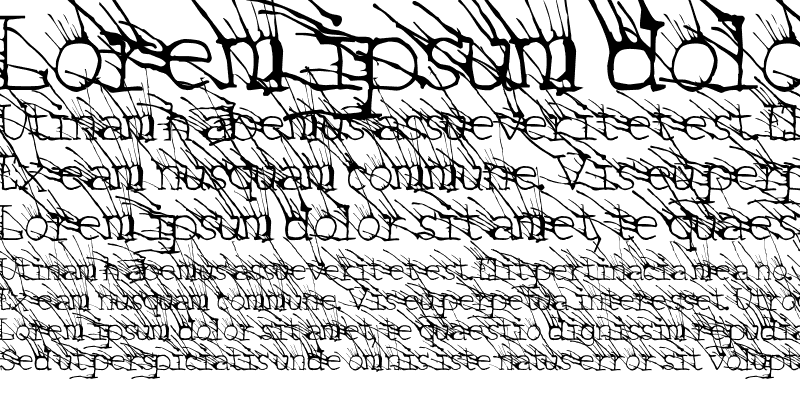 Lorem ipsum dolo
Utinam habemus assueverit et est. El
Ex eam nusquam commune. Vis eu perp
Lorem ipsum dolor sit amet, te quaes
Utinam habemus assueverit et est. Elit pertinacia mea no.
Ex eam nusquam commune. Vis eu perpetua interesset. Utro
Lorem ipsum dolor sit amet, te quaestio dignissim repudia
Sed ut perspiciatis unde omnis iste natus error sit volupt